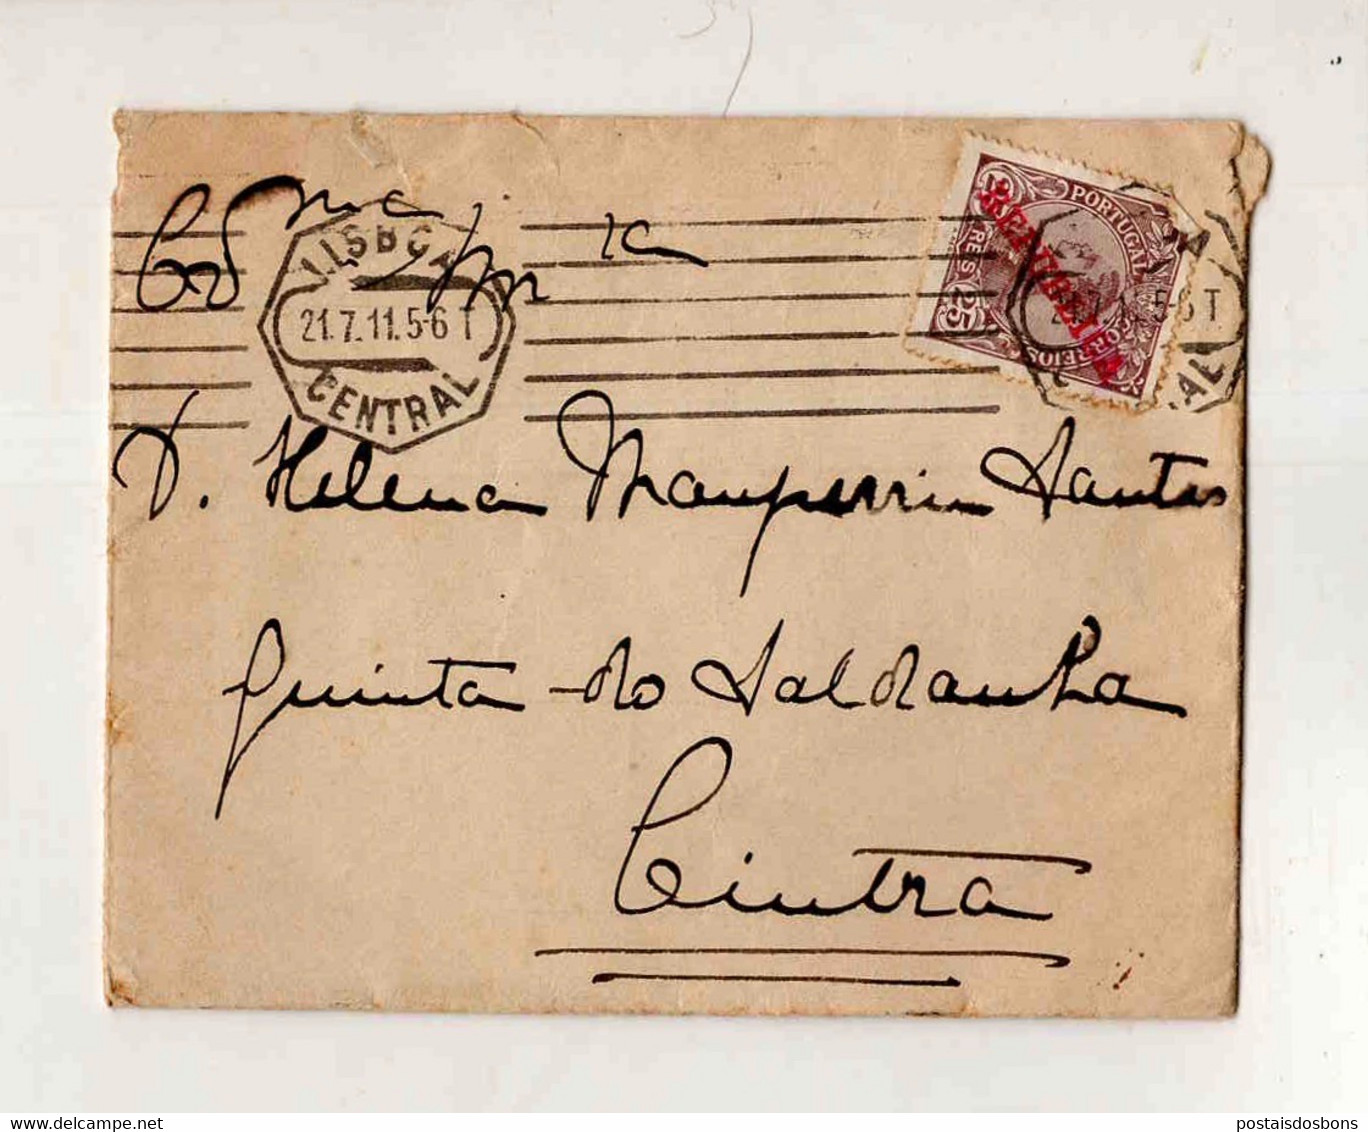 Exma Sra
LISBOA
21.7.11.5-6 T
CENTRAL
PORTUGAL
CORREIOS
25 REIS 25
REPUBLICA
D. Helena Mauperrin Santos
Quinta do Saldanha
Cintra
Delcampe.net
postaisdosbons